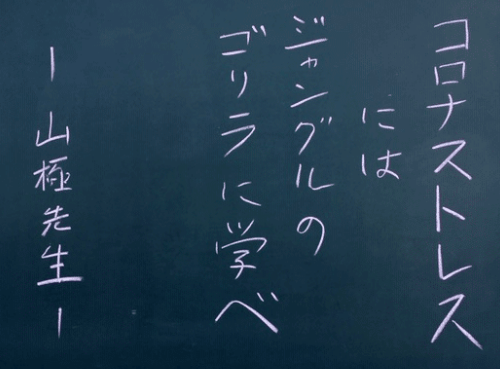 コロナストレス
には
ジャングルの
ゴリラに学べ
ー山極先生ー